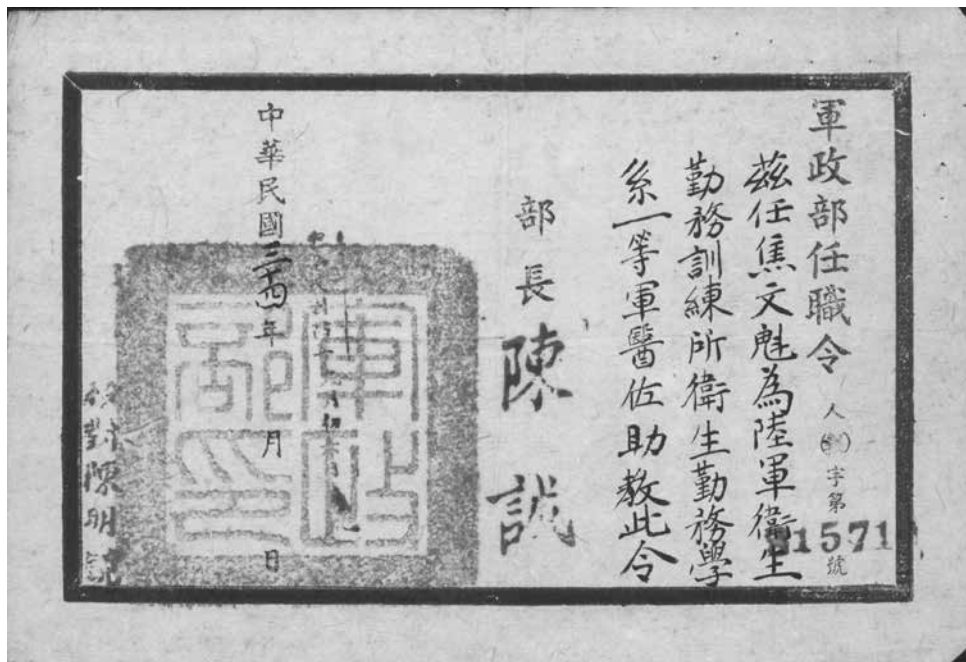 軍政部任職令 人 字第 1571 號
茲任焦文魁為陸軍衛生
勤務訓練所衛生勤務學
系一等軍醫佐助教此令
部長 陳誠
中華民國三十四年 月 日
軍政部印
校對陳明